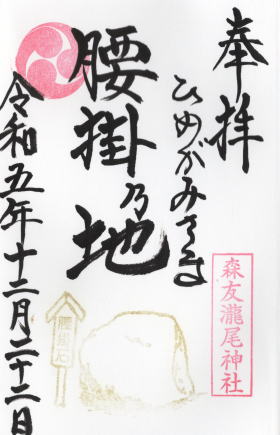 奉拝
ひめがみさま
腰掛乃地
令和五年十二月二十二日
森友瀧尾神社
腰掛石